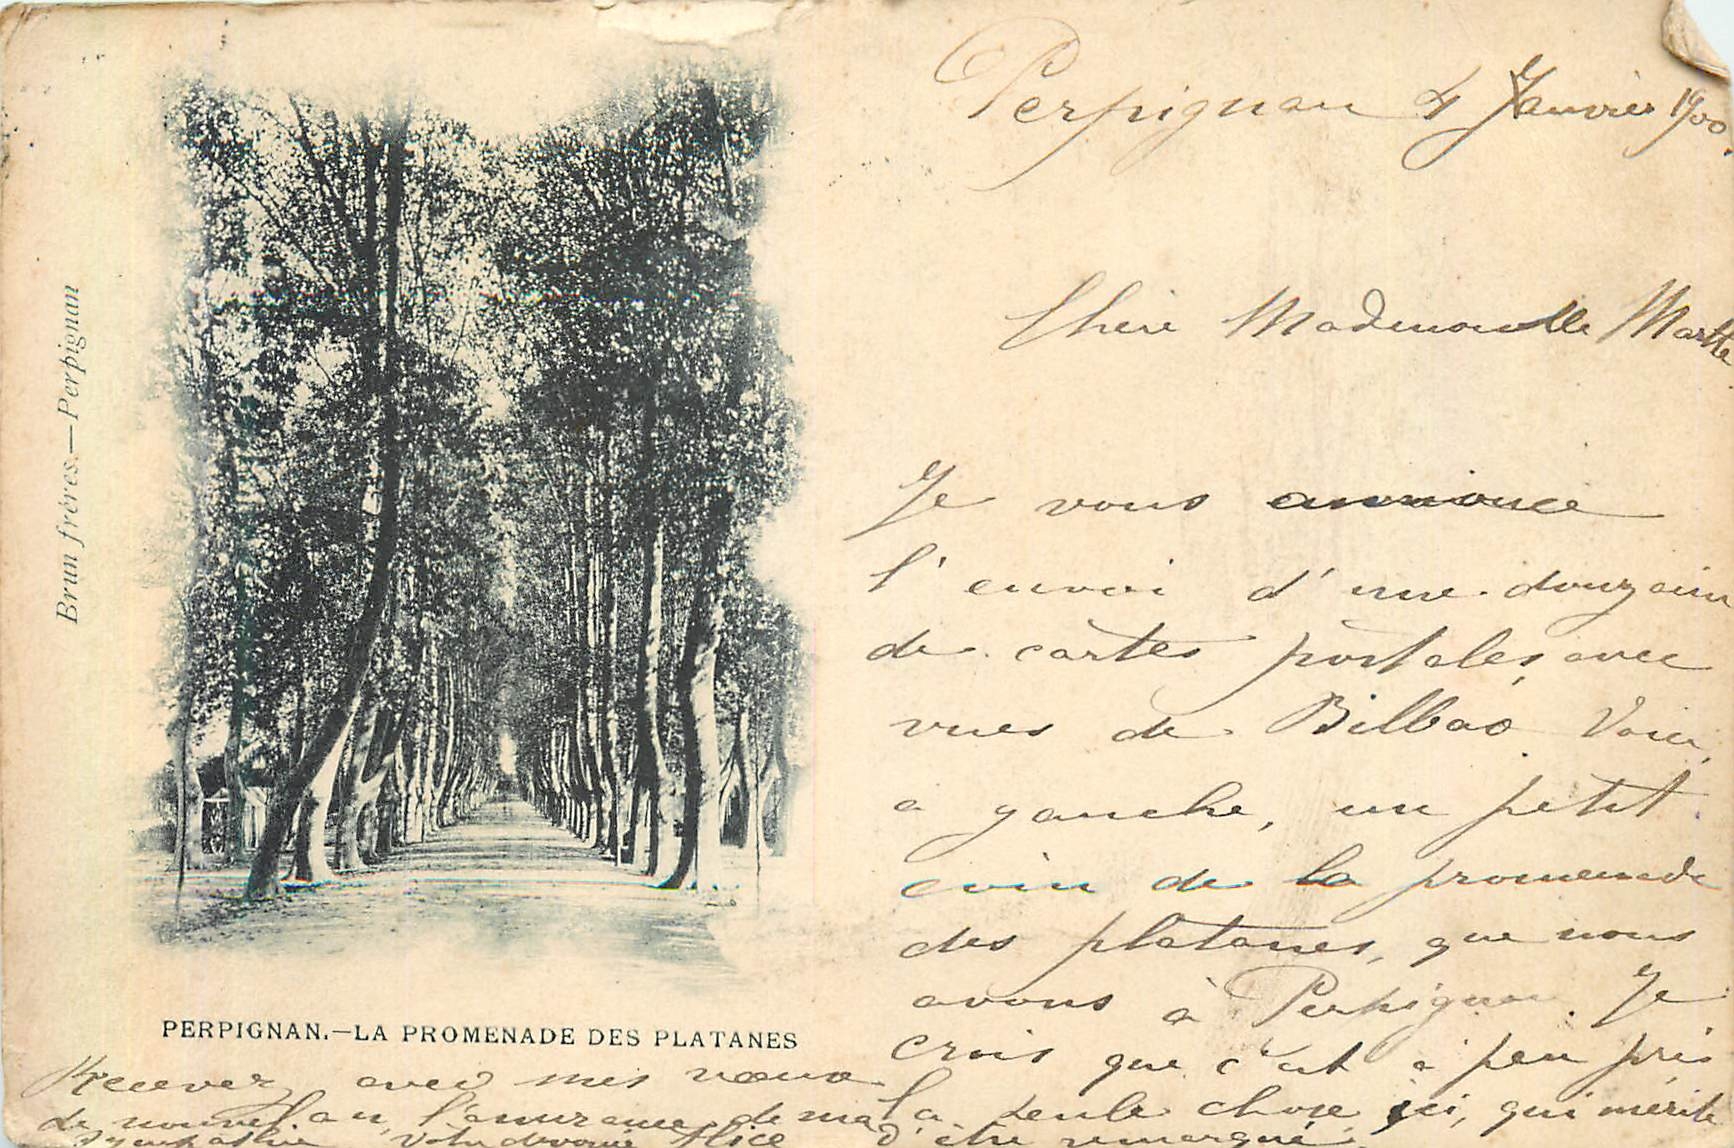 Perpignan 4 Janvier 1900.
Chère Mademoiselle Marthe
Je vous annonce
l'envoi d'une douzain
de cartes postales, avec
vues de Bilbao Voici,
a gauche, un petit
coin de la promenade
des platanes, que nous
avons à Perpignan. Je
crois que c'est à peu près
la seule chose ici, qui mérite
d'être remarqué.
Recevez avec mes vœux
de nouvel an, l'assurance de ma
sympathie Votre devouée Alice
Brun frères.—Perpignan
PERPIGNAN.—LA PROMENADE DES PLATANES